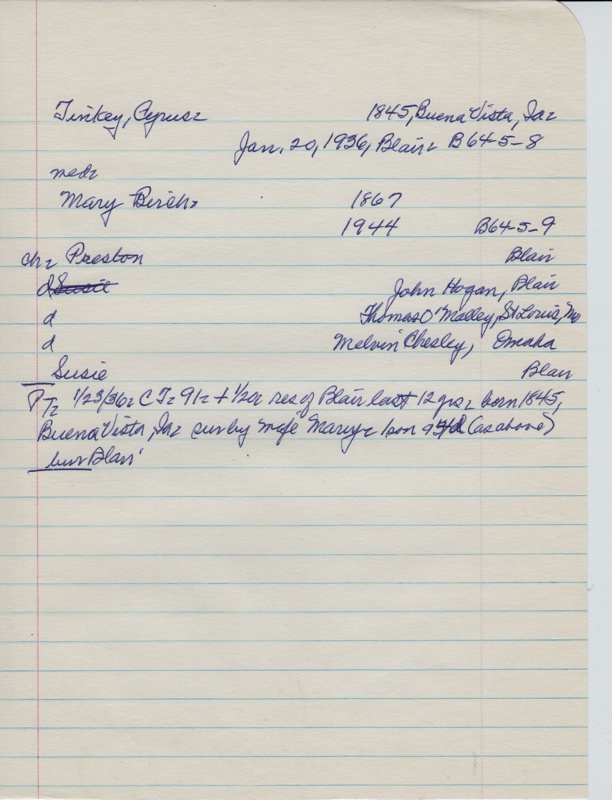 Tinkey, Cyrus 1845, Buena Vista, Ia
Jan. 20, 1936, Blair B64-5-8
md
Mary Birch 1867
1944 B64-5-9
ch Preston Blair
d Susie John Hogan, Blair
d Thomas O'Malley, St Louis, Mo
d Melvin Chesley, Omaha
Susie Blair
PT 1/23/36 CT 91 + 1/2 a res of Blair last 12 yrs born 1845,
Buena Vista, Ia sur by wife Mary 1 son 4 d (as above)
bur Blair